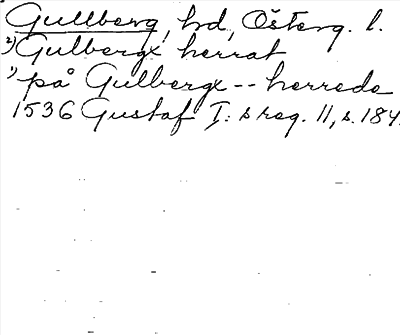 Gullberg, hd, Österg. l.
2) Gulbergx herrat
1) på Gulbergx -- herrede
1536 Gustaf I:s reg. 11, s. 184.